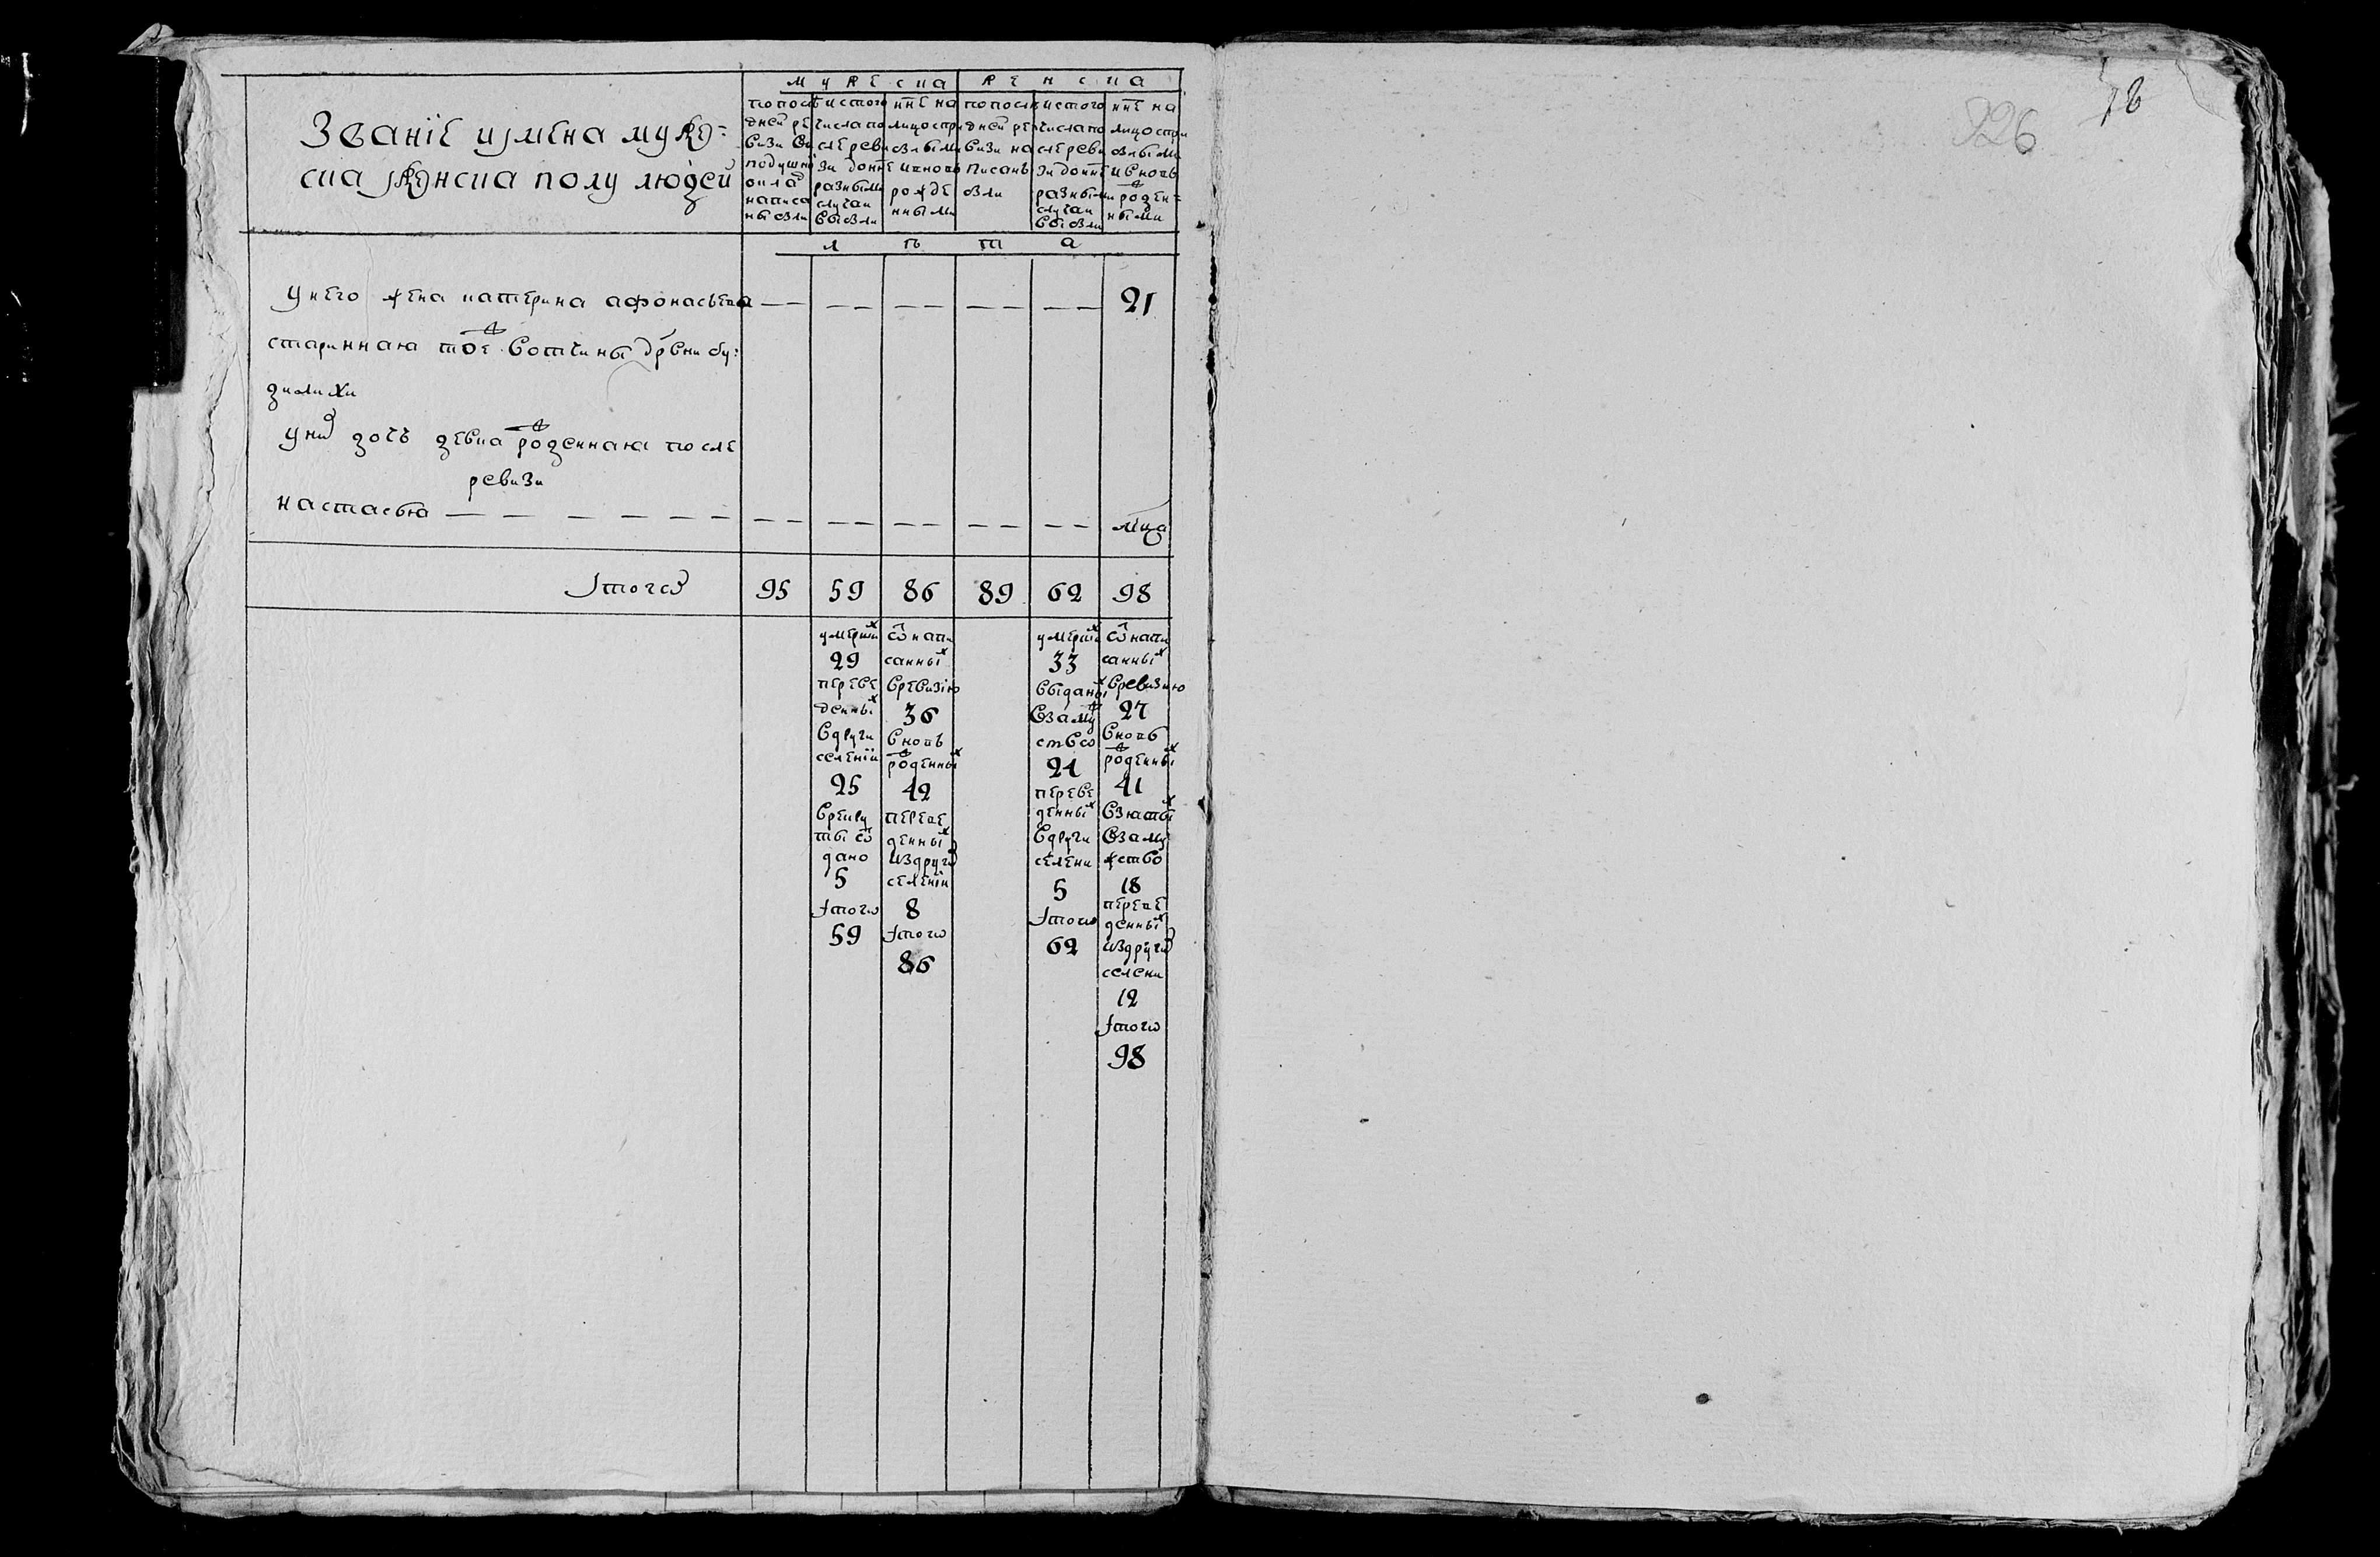 Званїе иjмѣна муже=
ска jженска полу людей
мужеска
женска
попосл
дней ре
визи в
подушно
окла
написа
ны были
истого
числа по
сле реви
зи донне
разными
случаи
выбыли
нне на
лицо спри
былыми
ивновь
рожде
нными
попосле
дней ре
визи на
писаны
были
истого
числа по
сле реви
зи донне
разными
случаи
выбыли
нне на
лицо спри
былыми
ивновь
рожден=
ными
л ѣ т а
унего жена катерина афонасьева — — — — — — 21
стариннаю тоже вотчины дрвни бу=
зилихи
уни дочь девка рожденнаю после
ревизи
настасью — — — — — — — — — мца
Jтого 95 59 86 89 62 98
умерши х
29
переве
денны х
вдруги
селенїи
25
врекру
ты ѿ
дано
5
Jтого
59
ѿ напи
санны х
вревизїю
36
вновь
рожденны х
42
переве
денны х
издруги
селенїи
8
Jтого
86
умерши х
33
выданы х
взаму ж
ство
24
переве
денны х
вдруги
селени
5
Jтого
62
ѿ напи
санны х
вревизию
27
вновь
рожденны х
41
взяты х
взаму
жство
18
переве
денны х
издруги
селени
12
Jтого
98
226